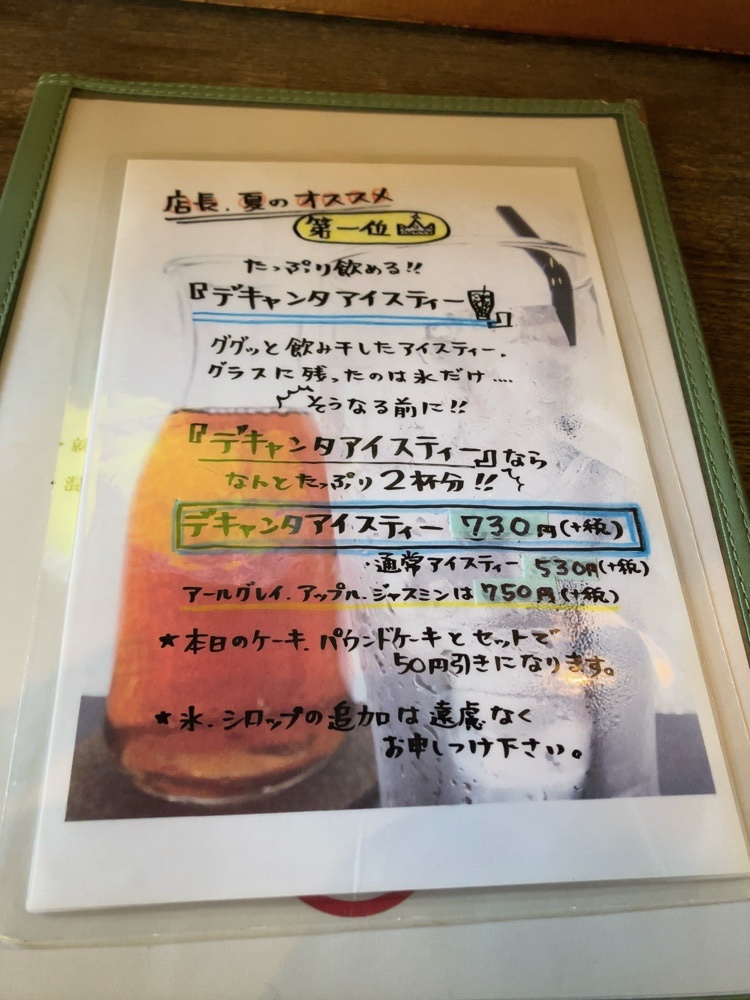 店長、夏のオススメ
第一位
たっぷり飲める!!
『デキャンタアイスティー』
ググッと飲み干したアイスティー、
グラスに残ったのは氷だけ....
そうなる前に!!
『デキャンタアイスティー』なら
なんとたっぷり2杯分!!
デキャンタアイスティー 730円(+税)
・通常アイスティー 530円(+税)
アールグレイ、アップル、ジャスミンは 750円(+税)
★本日のケーキ、パウンドケーキとセットで
50円引きになります。
★氷、シロップの追加は遠慮なく
お申しつけ下さい。